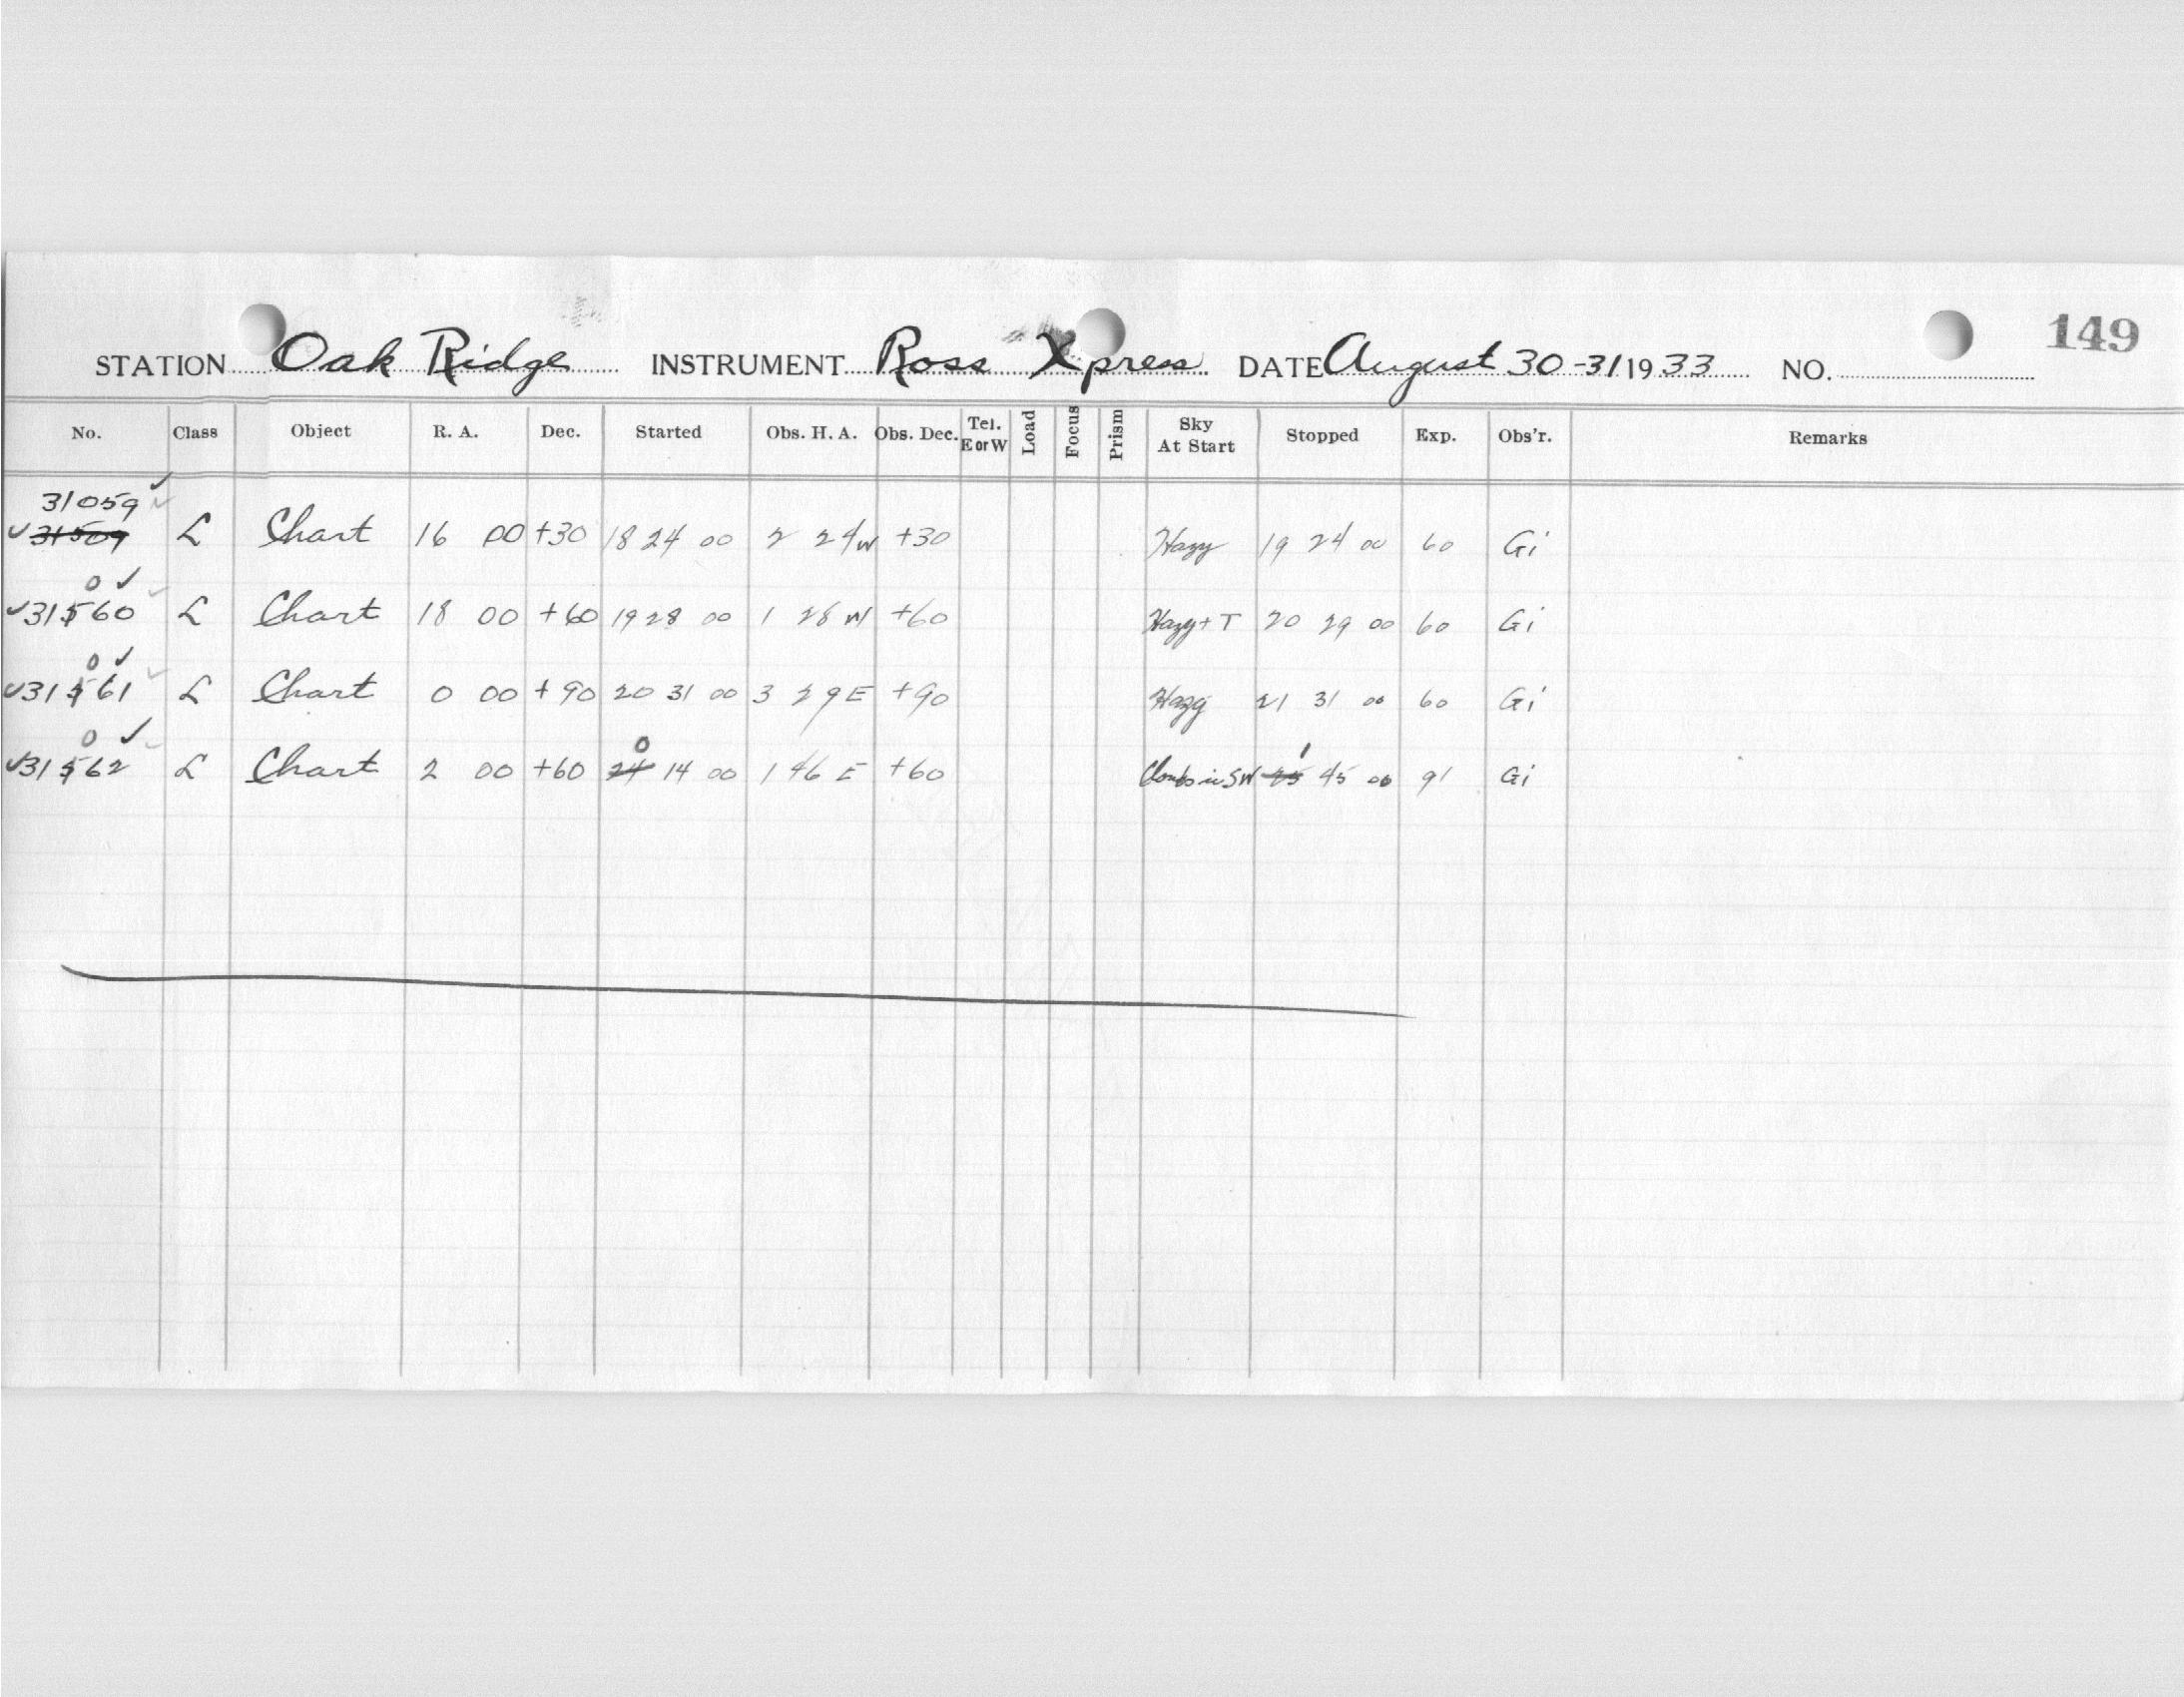 149
STATION Oak Ridge INSTRUMENT Ross Xpress DATE August 30-31 1933 NO.
No. Class Object R. A. Dec. Started Obs. H. A. Obs. Dec. Tel. E or W Load Focus Prism Sky At Start Stopped Exp. Obs'r. Remarks
31059 ✓
✓ 31509 L Chart 16 00 +30 18 24 00 2 24 W +30 Hazy 19 24 00 60 Gi
0 ✓
✓ 31560 L Chart 18 00 +60 19 28 00 1 28 W +60 Hazy + T 20 29 00 60 Gi
0 ✓
✓ 31561 L Chart 0 00 +90 20 31 00 3 29 E +90 Hazy 21 31 00 60 Gi
0 ✓ 0 1
✓ 31562 L Chart 2 00 +60 24 14 00 1 46 E +60 Clouds in SW 25 45 00 91 Gi